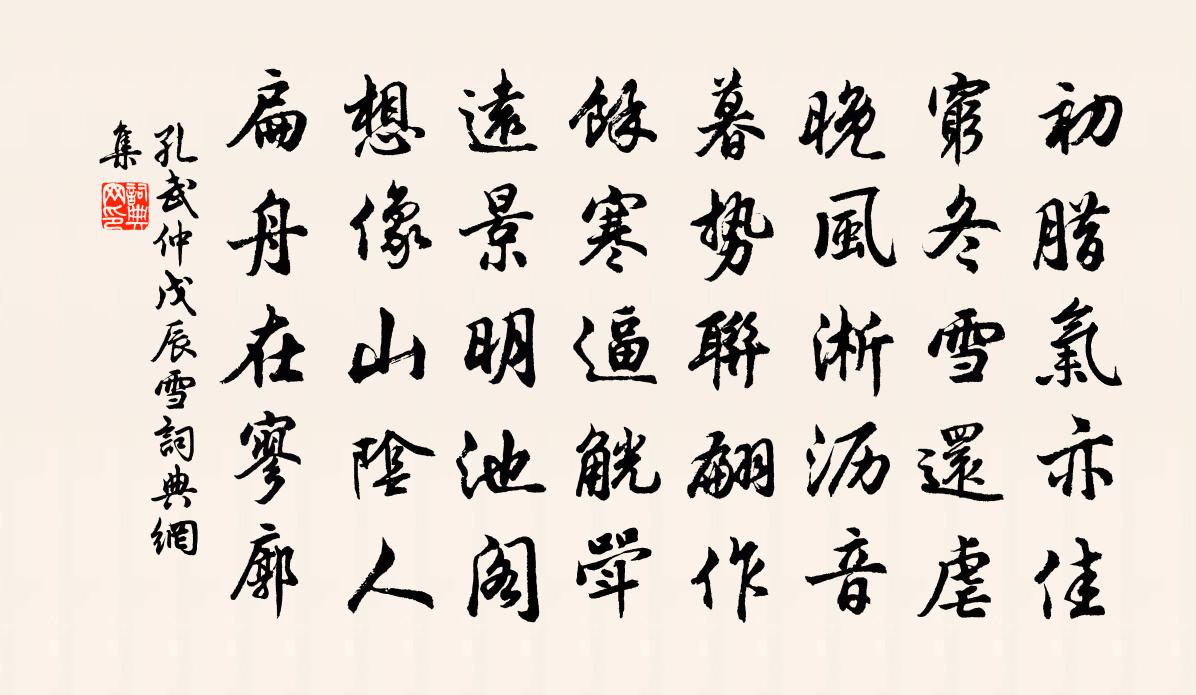 初腊氣亦佳
窮冬雪還虐
晚風淅沥音
暮势聯翩作
餘寒逼觥斝
遠景明池阁
想像山陰人
扁舟在寥廓
孔武仲戊辰雪詞典網
集
詞典网印